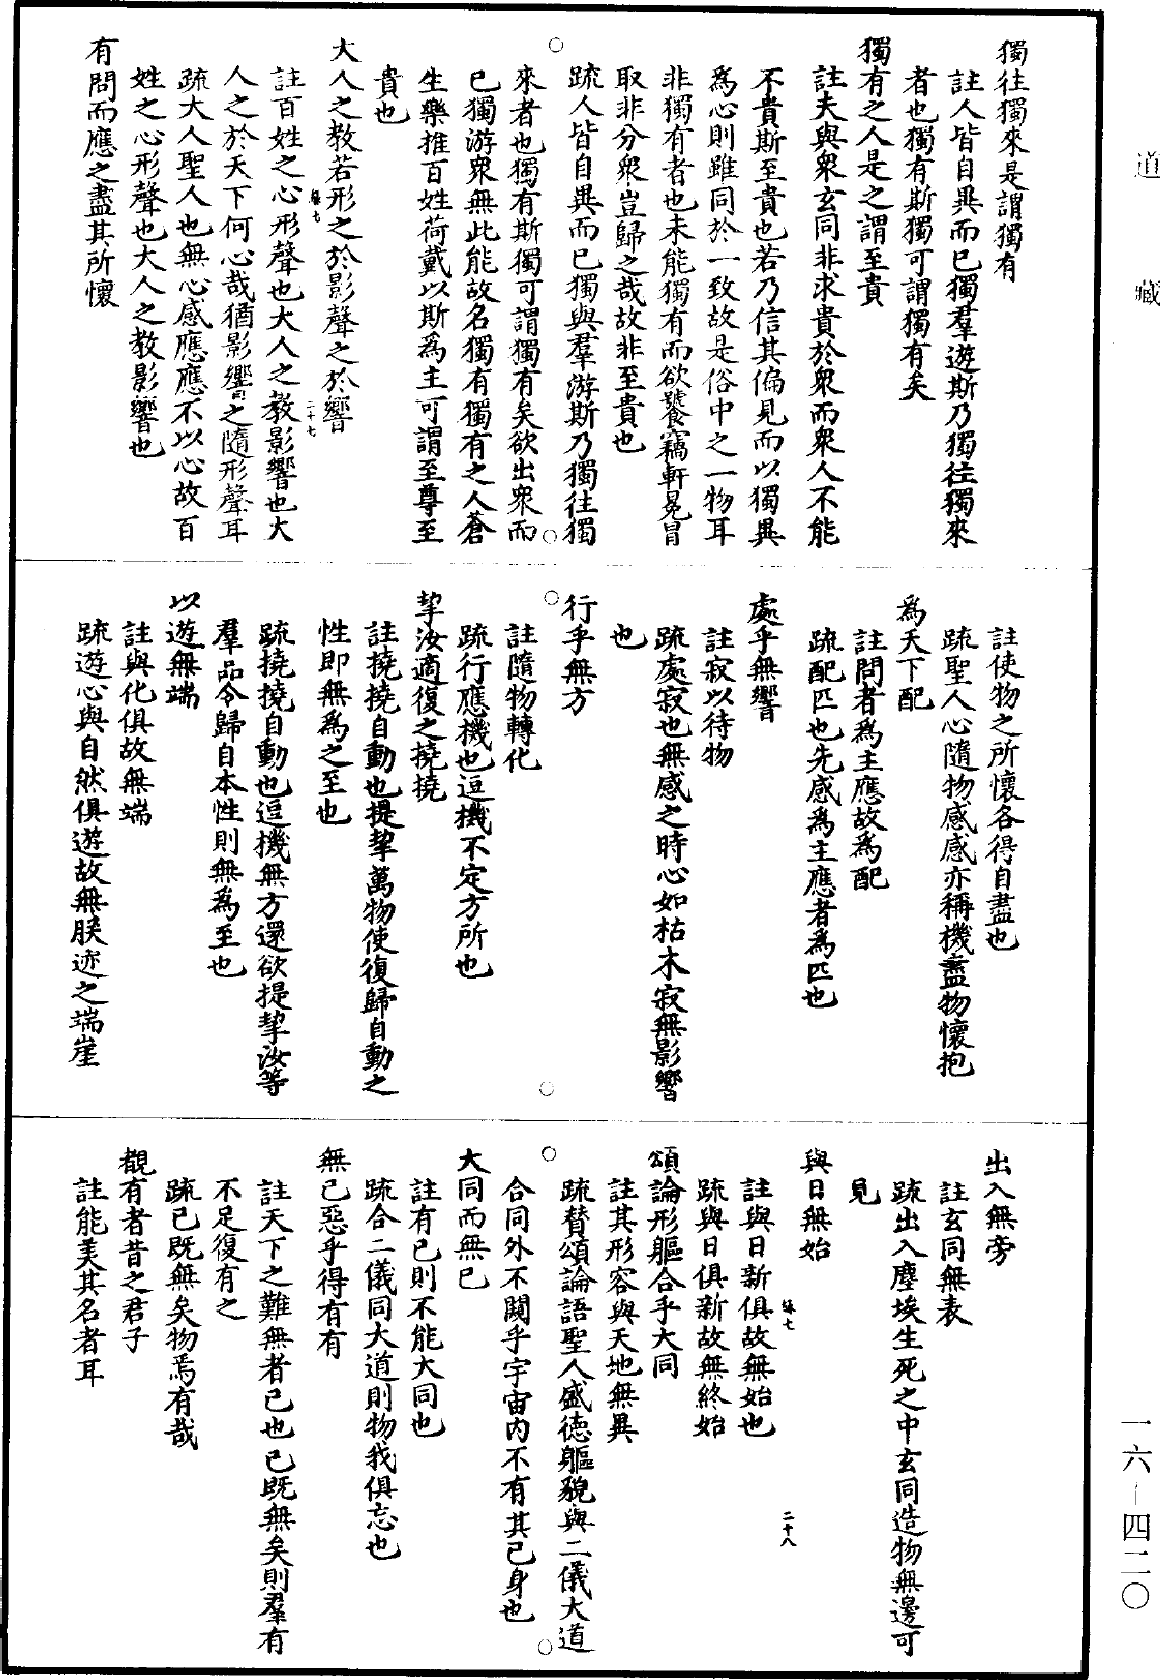 道藏
獨往獨來是謂獨有
註人皆自異而已獨羣遊斯乃獨往獨來
者也獨有斯獨可謂獨有矣
獨有之人是之謂至貴
註夫與衆玄同非求貴於衆而衆人不能
不貴斯至貴也若乃信其偏見而以獨異
為心則雖同於一致故是俗中之一物耳
非獨有者也未能獨有而欲饕竊軒冕冒
取非分衆豈歸之哉故非至貴也
疏人皆自異而已獨與羣游斯乃獨往獨
來者也獨有斯獨可謂獨有矣欲出衆而
已獨游衆無此能故名獨有獨有之人蒼
生樂推百姓荷戴以斯為主可謂至尊至
貴也
大人之教若形之於影聲之於響
二十七
註百姓之心形聲也大人之教影響也大
人之於天下何心哉猶影響之隨形聲耳
疏大人聖人也無心感應應不以心故百
姓之心形聲也大人之教影響也
有問而應之盡其所懷
註使物之所懷各得自盡也
疏聖人心隨物感感亦稱機盡物懷抱
為天下配
註問者為主應故為配
疏配匹也先感為主應者為匹也
處乎無響
註寂以待物
疏處寂也無感之時心如枯木寂無影響
也
行乎無方
註隨物轉化
疏行應機也逗機不定方所也
挈汝適復之撓撓
註撓撓自動也提挈萬物使復歸自動之
性即無為之至也
疏撓撓自動也逗機無方還欲提挈汝等
羣品令歸自本性則無為至也
以遊無端
註與化俱故無端
疏遊心與自然俱遊故無朕迹之端崖
出入無旁
註玄同無表
疏出入塵埃生死之中玄同造物無邊可
見
與日無始
二十八
註與日新俱故無始也
疏與日俱新故無終始
頌論形軀合乎大同
註其形容與天地無異
疏贊頌論語聖人盛德軀貌與二儀大道
合同外不闚乎宇宙內不有其已身也
大同而無已
註有已則不能大同也
疏合二儀同大道則物我俱忘也
無已惡乎得有有
註天下之難無者已也已既無矣則羣有
不足復有之
疏已既無矣物焉有哉
覩有者昔之君子
註能美其名者耳
一六—四二〇